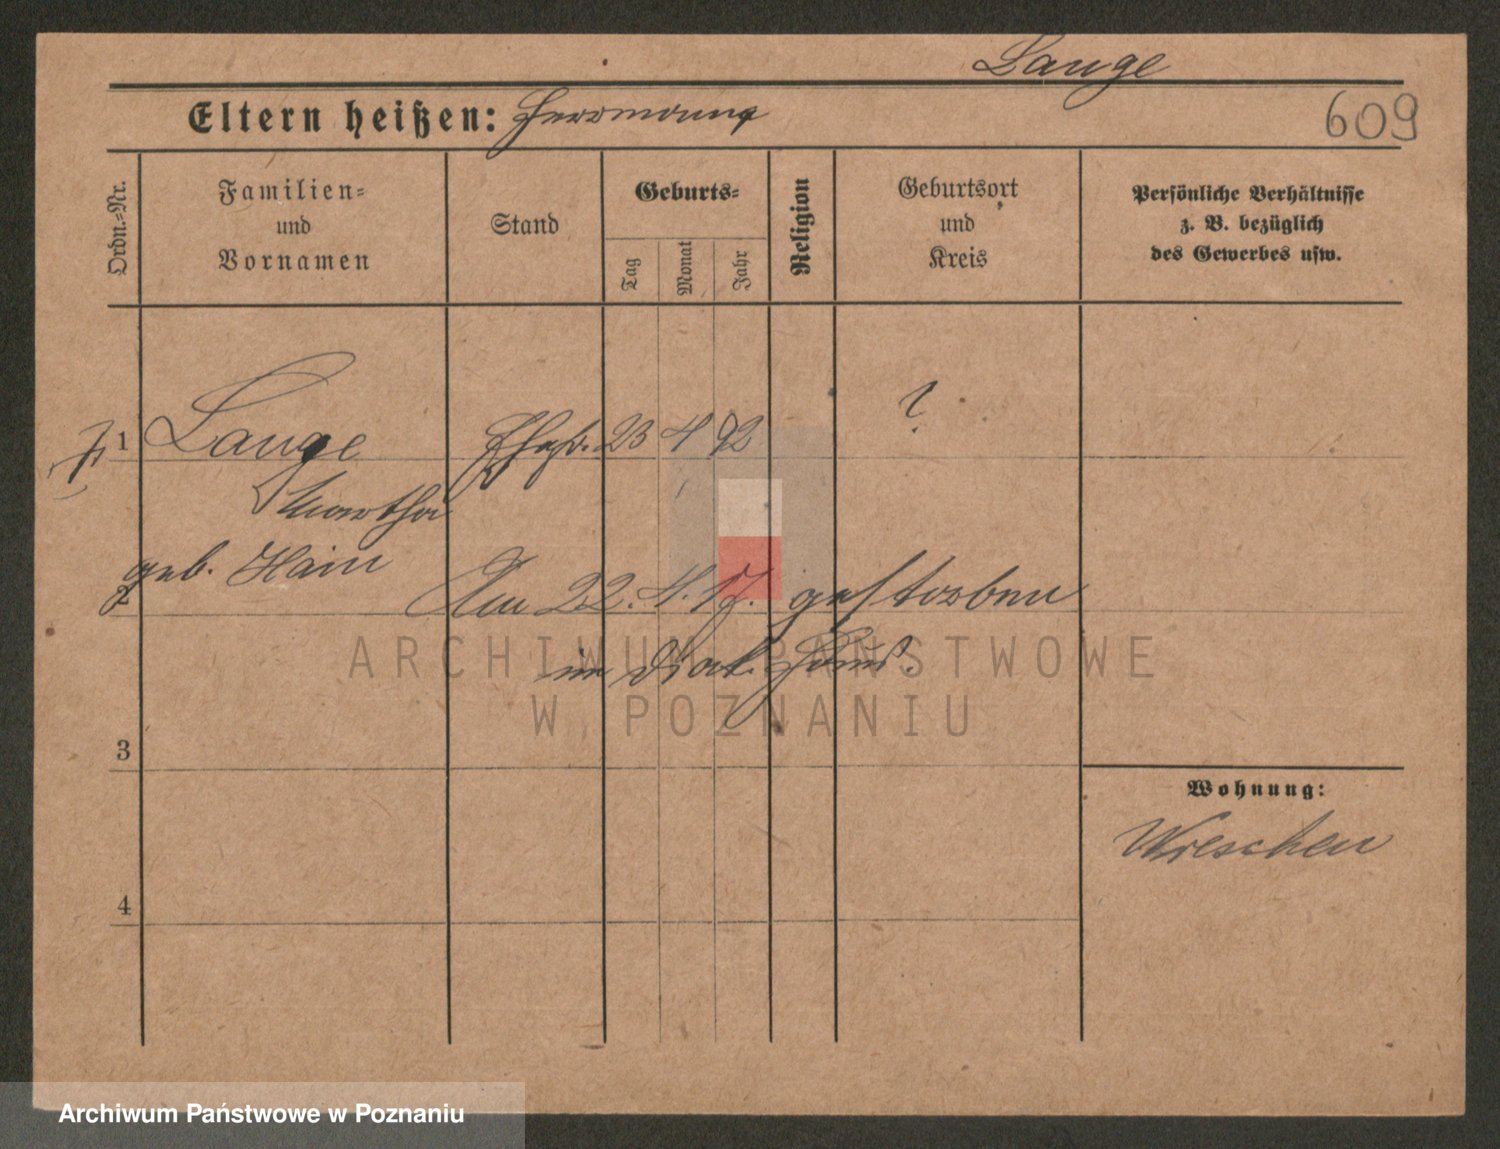 Lange
609
Eltern heißen: Herrmann
Ordn.-Nr.
Familien-
und
Vornamen
Stand
Geburts-
Tag
Monat
Jahr
Religion
Geburtsort
und
Kreis
Persönliche Verhältnisse
z. B. bezüglich
des Gewerbes usw.
1 Lange Ehefr. 23 4 92 ?
Martha
geb. Hain
2 Am 22. 4. 17. gestorben
im Diak. Haus.
ARCHIWUM PAŃSTWOWE
W POZNANIU
3
Wohnung:
Wreschen
4
Archiwum Państwowe w Poznaniu